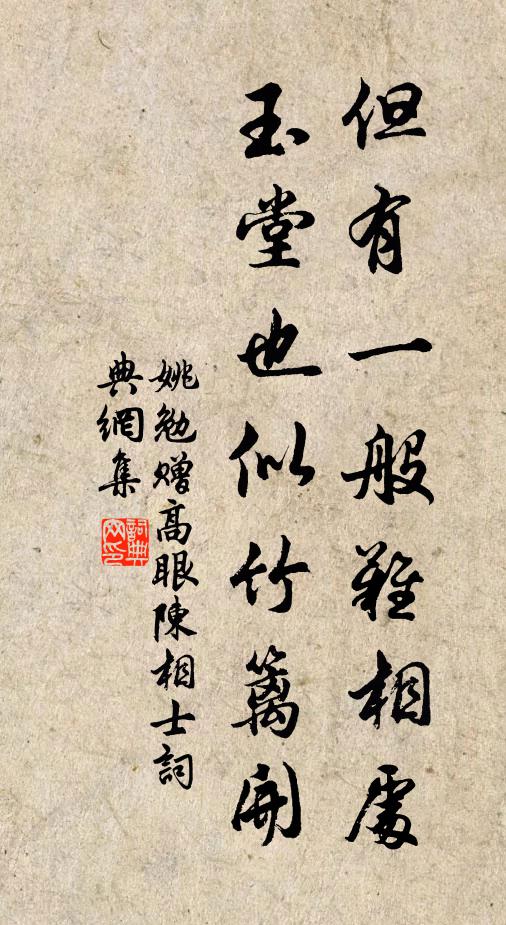 但有一般難相處
玉堂也似竹籬開
姚勉赠高眼陳相士詞
典網集
詞典网印